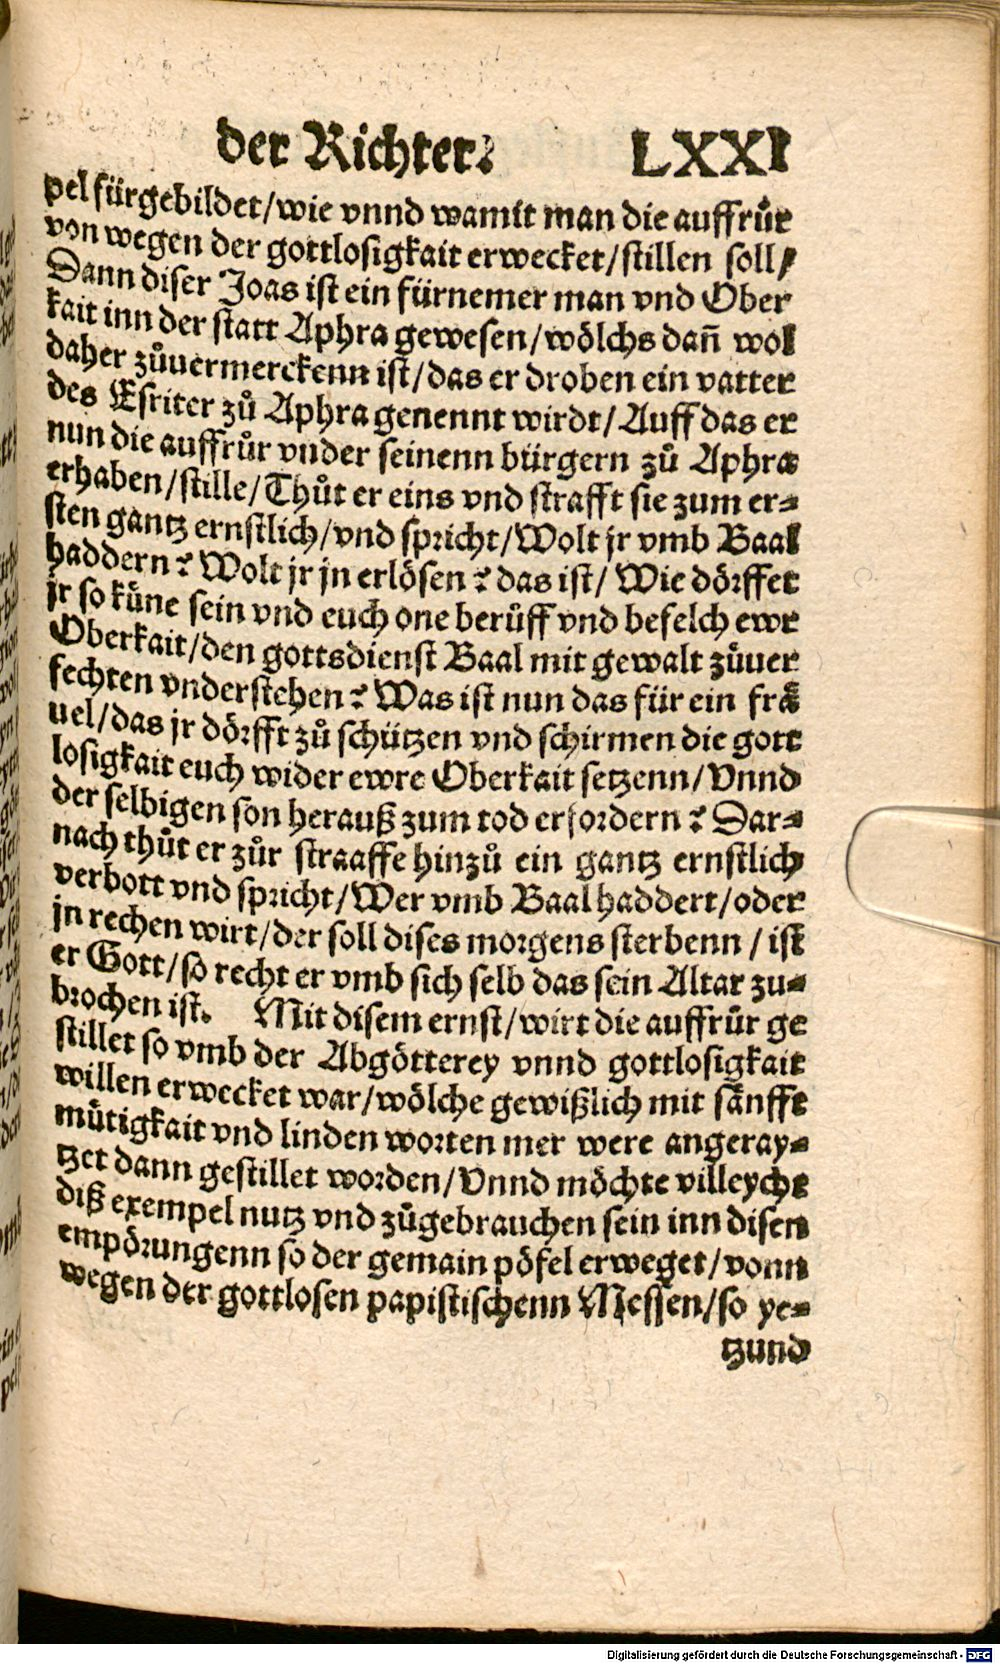 der Richter. LXXI
pel fürgebildet/wie vnnd wamit man die auffrůr
von wegen der gottlosigkait erwecket/stillen soll/
Dann diser Joas ist ein fürnemer man vnd Ober
kait inn der statt Aphra gewesen/wölchs dañ wol
daher zůuermerckenn ist/das er droben ein vatter
des Esriter zů Aphra genennt wirdt/Auff das er
nun die auffrůr vnder seinenn bürgern zů Aphra
erhaben/stille/Thůt er eins vnd strafft sie zum er-
sten gantz ernstlich/vnd spricht/Wolt jr vmb Baal
haddern? Wolt jr jn erlösen? das ist/ Wie dörffet
jr so küne sein vnd euch one berůff vnd befelch ewr
Oberkait/den gottsdienst Baal mit gewalt zůuer
fechten vnderstehen? Was ist nun das für ein frä
uel/das jr dörfft zů schützen vnd schirmen die gott
losigkait euch wider ewre Oberkait setzenn/Vnnd
der selbigen son herauß zum tod erfordern? Dar-
nach thůt er zůr straaffe hinzů ein gantz ernstlich
verbott vnd spricht/Wer vmb Baal haddert/oder
jn rechen wirt/der soll dises morgens sterbenn / ist
er Gott/so recht er vmb sich selb das sein Altar zu-
brochen ist. Mit disem ernst/wirt die auffrůr ge
stillet so vmb der Abgötterey vnnd gottlosigkait
willen erwecket war/wölche gewißlich mit sänfft
můtigkait vnd linden worten mer were angeray-
tzet dann gestillet worden/Vnnd möchte villeycht
diß exempel nutz vnd zůgebrauchen sein inn disen
empörungenn so der gemain pöfel erweget/vonn
wegen der gottlosen papistischenn Messen/so ye-
tzund
Digitalisierung gefördert durch die Deutsche Forschungsgemeinschaft - DFG